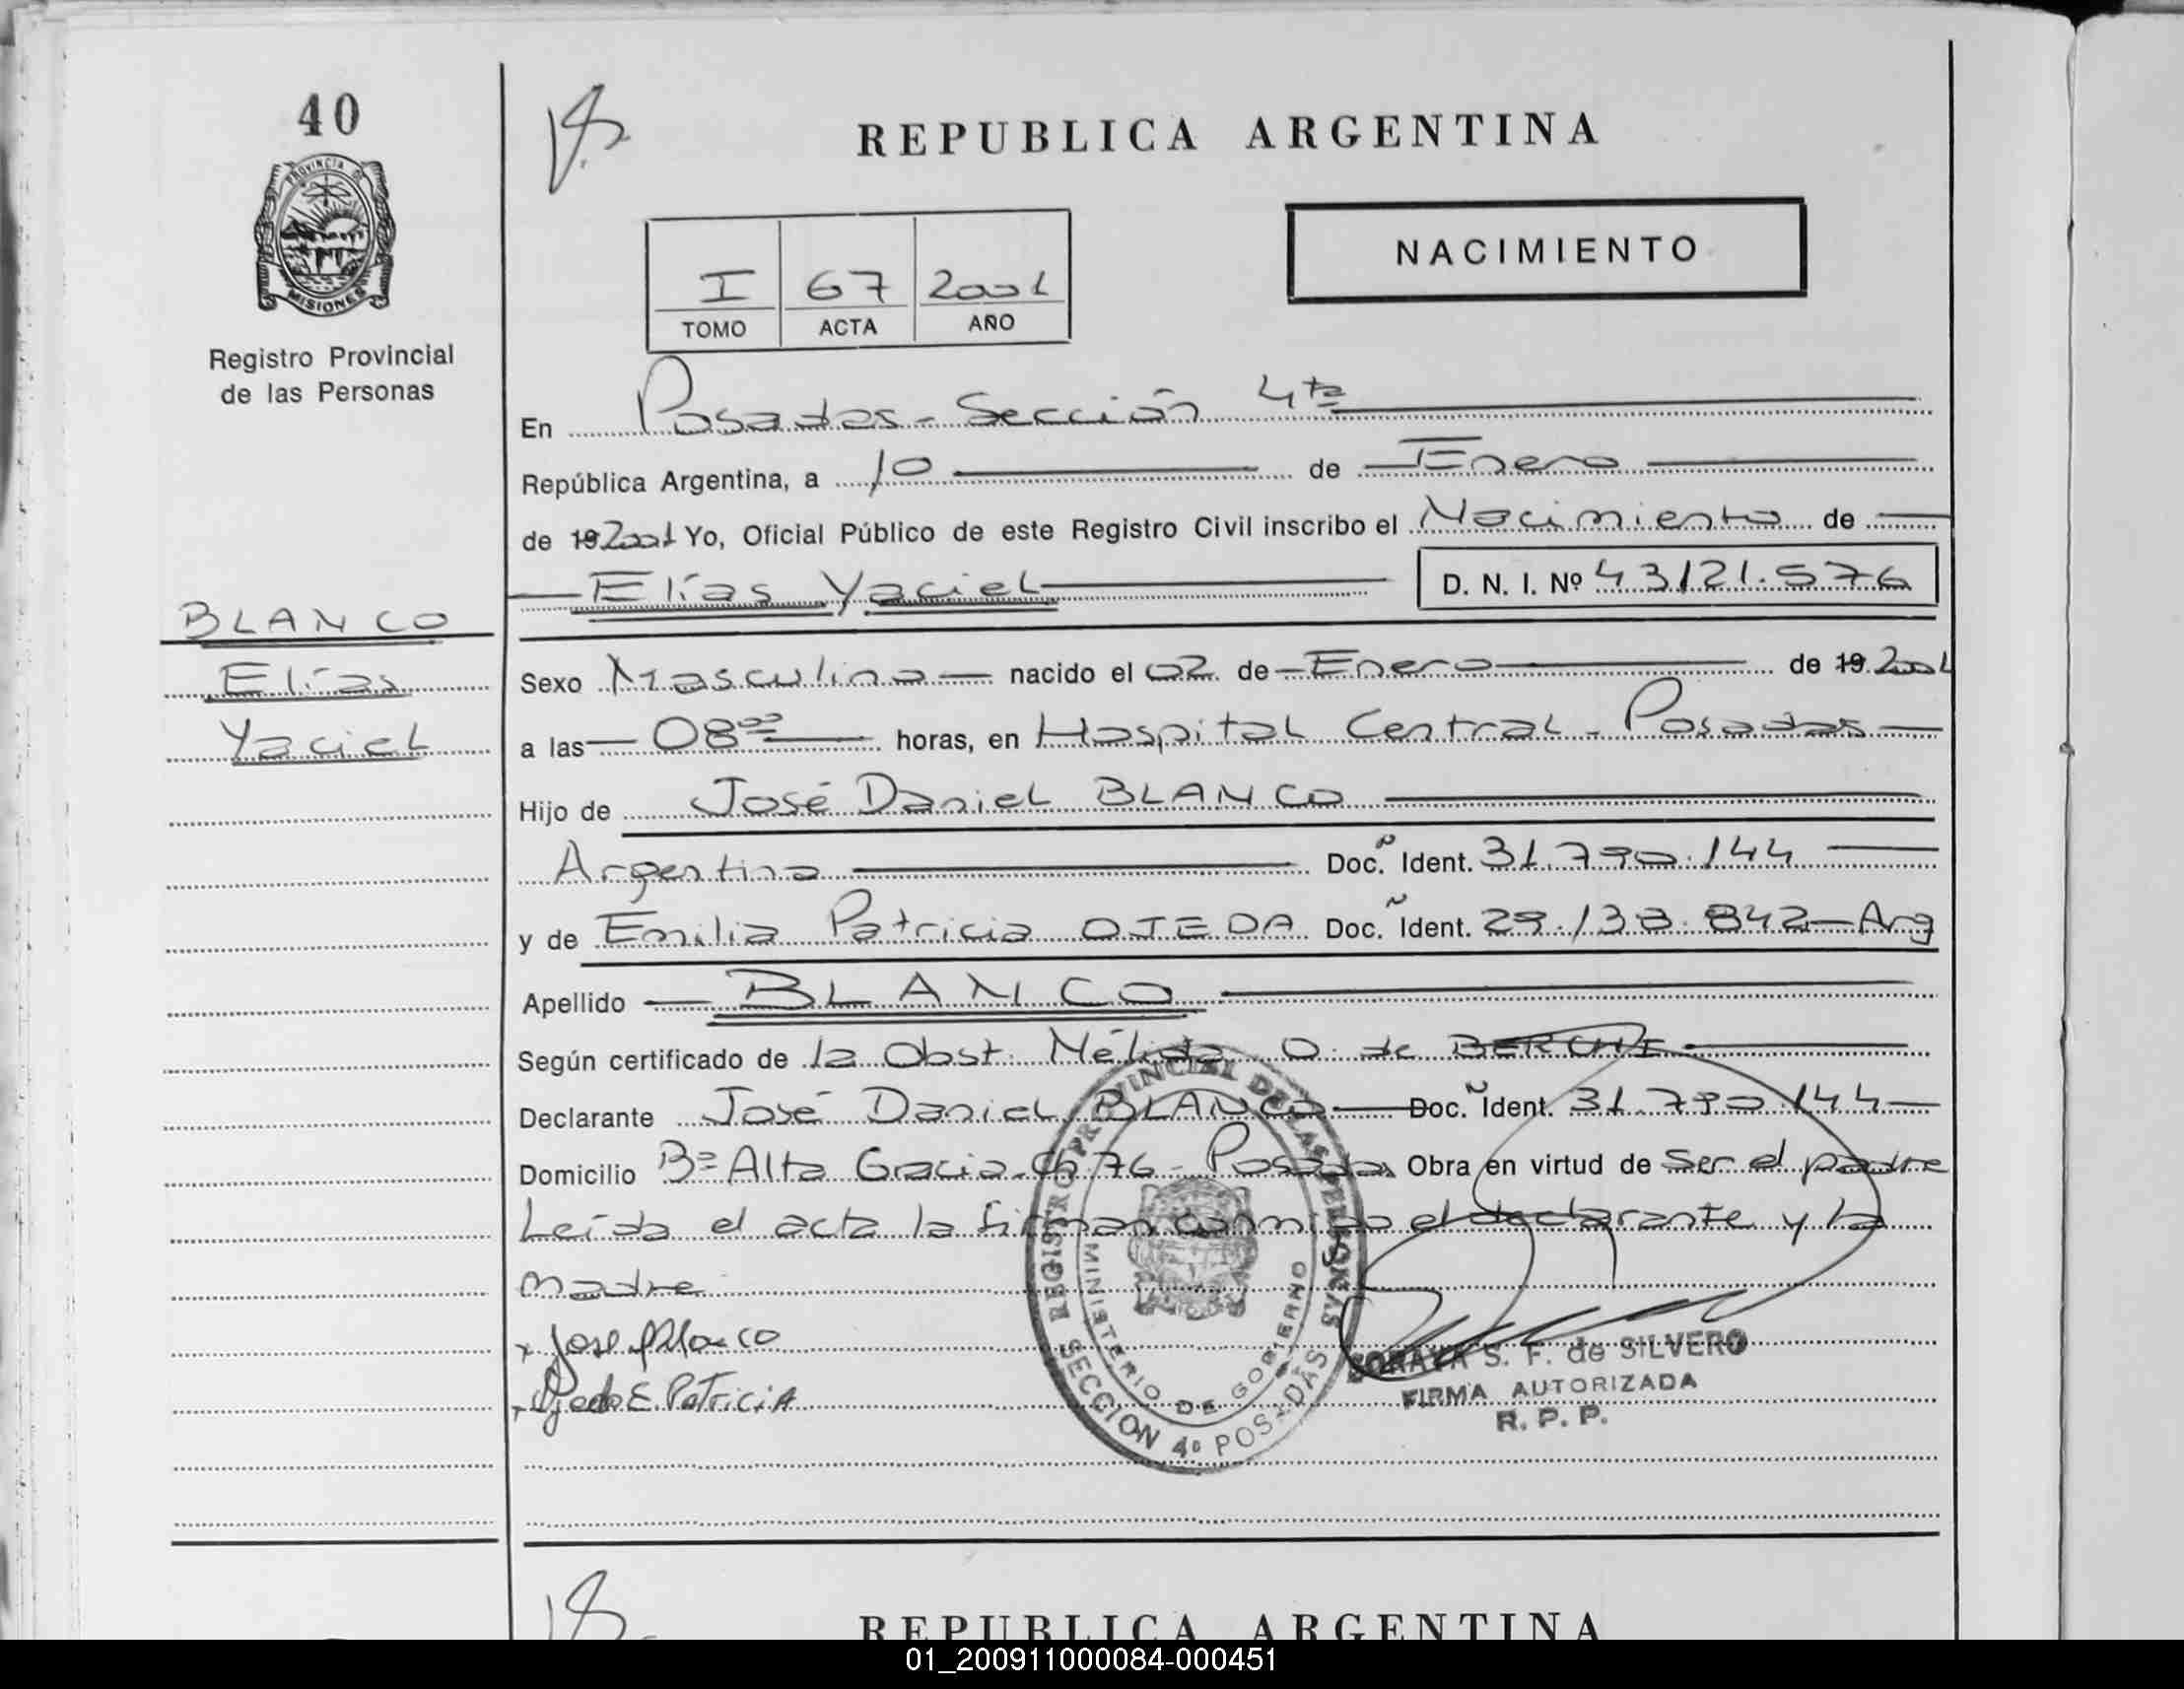 40
PROVINCIA DE
MISIONES
Registro Provincial
de las Personas
BLANCO
Elías
Yaciel
REPUBLICA ARGENTINA
NACIMIENTO
I 67 2001
TOMO ACTA AÑO
En Posadas - Sección 4ta
República Argentina, a 10 de Enero
de 19 2001 Yo, Oficial Público de este Registro Civil inscribo el Nacimiento de
Elías Yaciel D. N. I. Nº 43121.576
Sexo Masculino nacido el 02 de Enero de 19 2001
a las 08 00 horas, en Hospital Central - Posadas
Hijo de José Daniel BLANCO
Argentina Doc. Ident. 31.790.144
y de Emilia Patricia OJEDA Doc. Ident. 29.138.842 - Arg
Apellido BLANCO
Según certificado de la Obst. Nélida O. de
Declarante José Daniel BLANCO Doc. Ident. 31.790.144
Domicilio Bº Alta Gracia - Ch 76 - Posadas Obra en virtud de Ser el padre
Leída el acta la firman conmigo el declarante y la
madre
x Jose Blanco
x Ojeda E. PatriciA
REGISTRO PROVINCIAL DE LAS PERSONAS
MINISTERIO DE GOBIERNO
SECCION 4º POSADAS
SORAYA S. F. de SILVERO
FIRMA AUTORIZADA
R. P. P.
REPUBLICA ARGENTINA
01_200911000084-000451